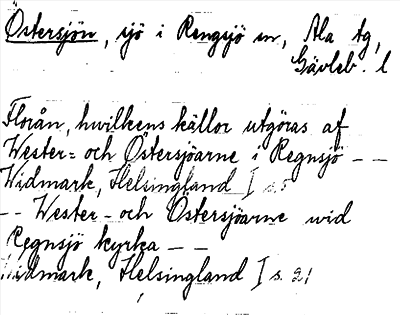 Östersjön, sjö i Rengsjö sn, Ala tg,
Gävleb. l
Florån, hwilkens källor utgöras af
Wester- och Östersjöarne i Regnsjö - -
Widmark, Helsingland I s. 5
- - Wester- och Östersjöarne wid
Regnsjö kyrka - -
Widmark, Helsingland I s. 21